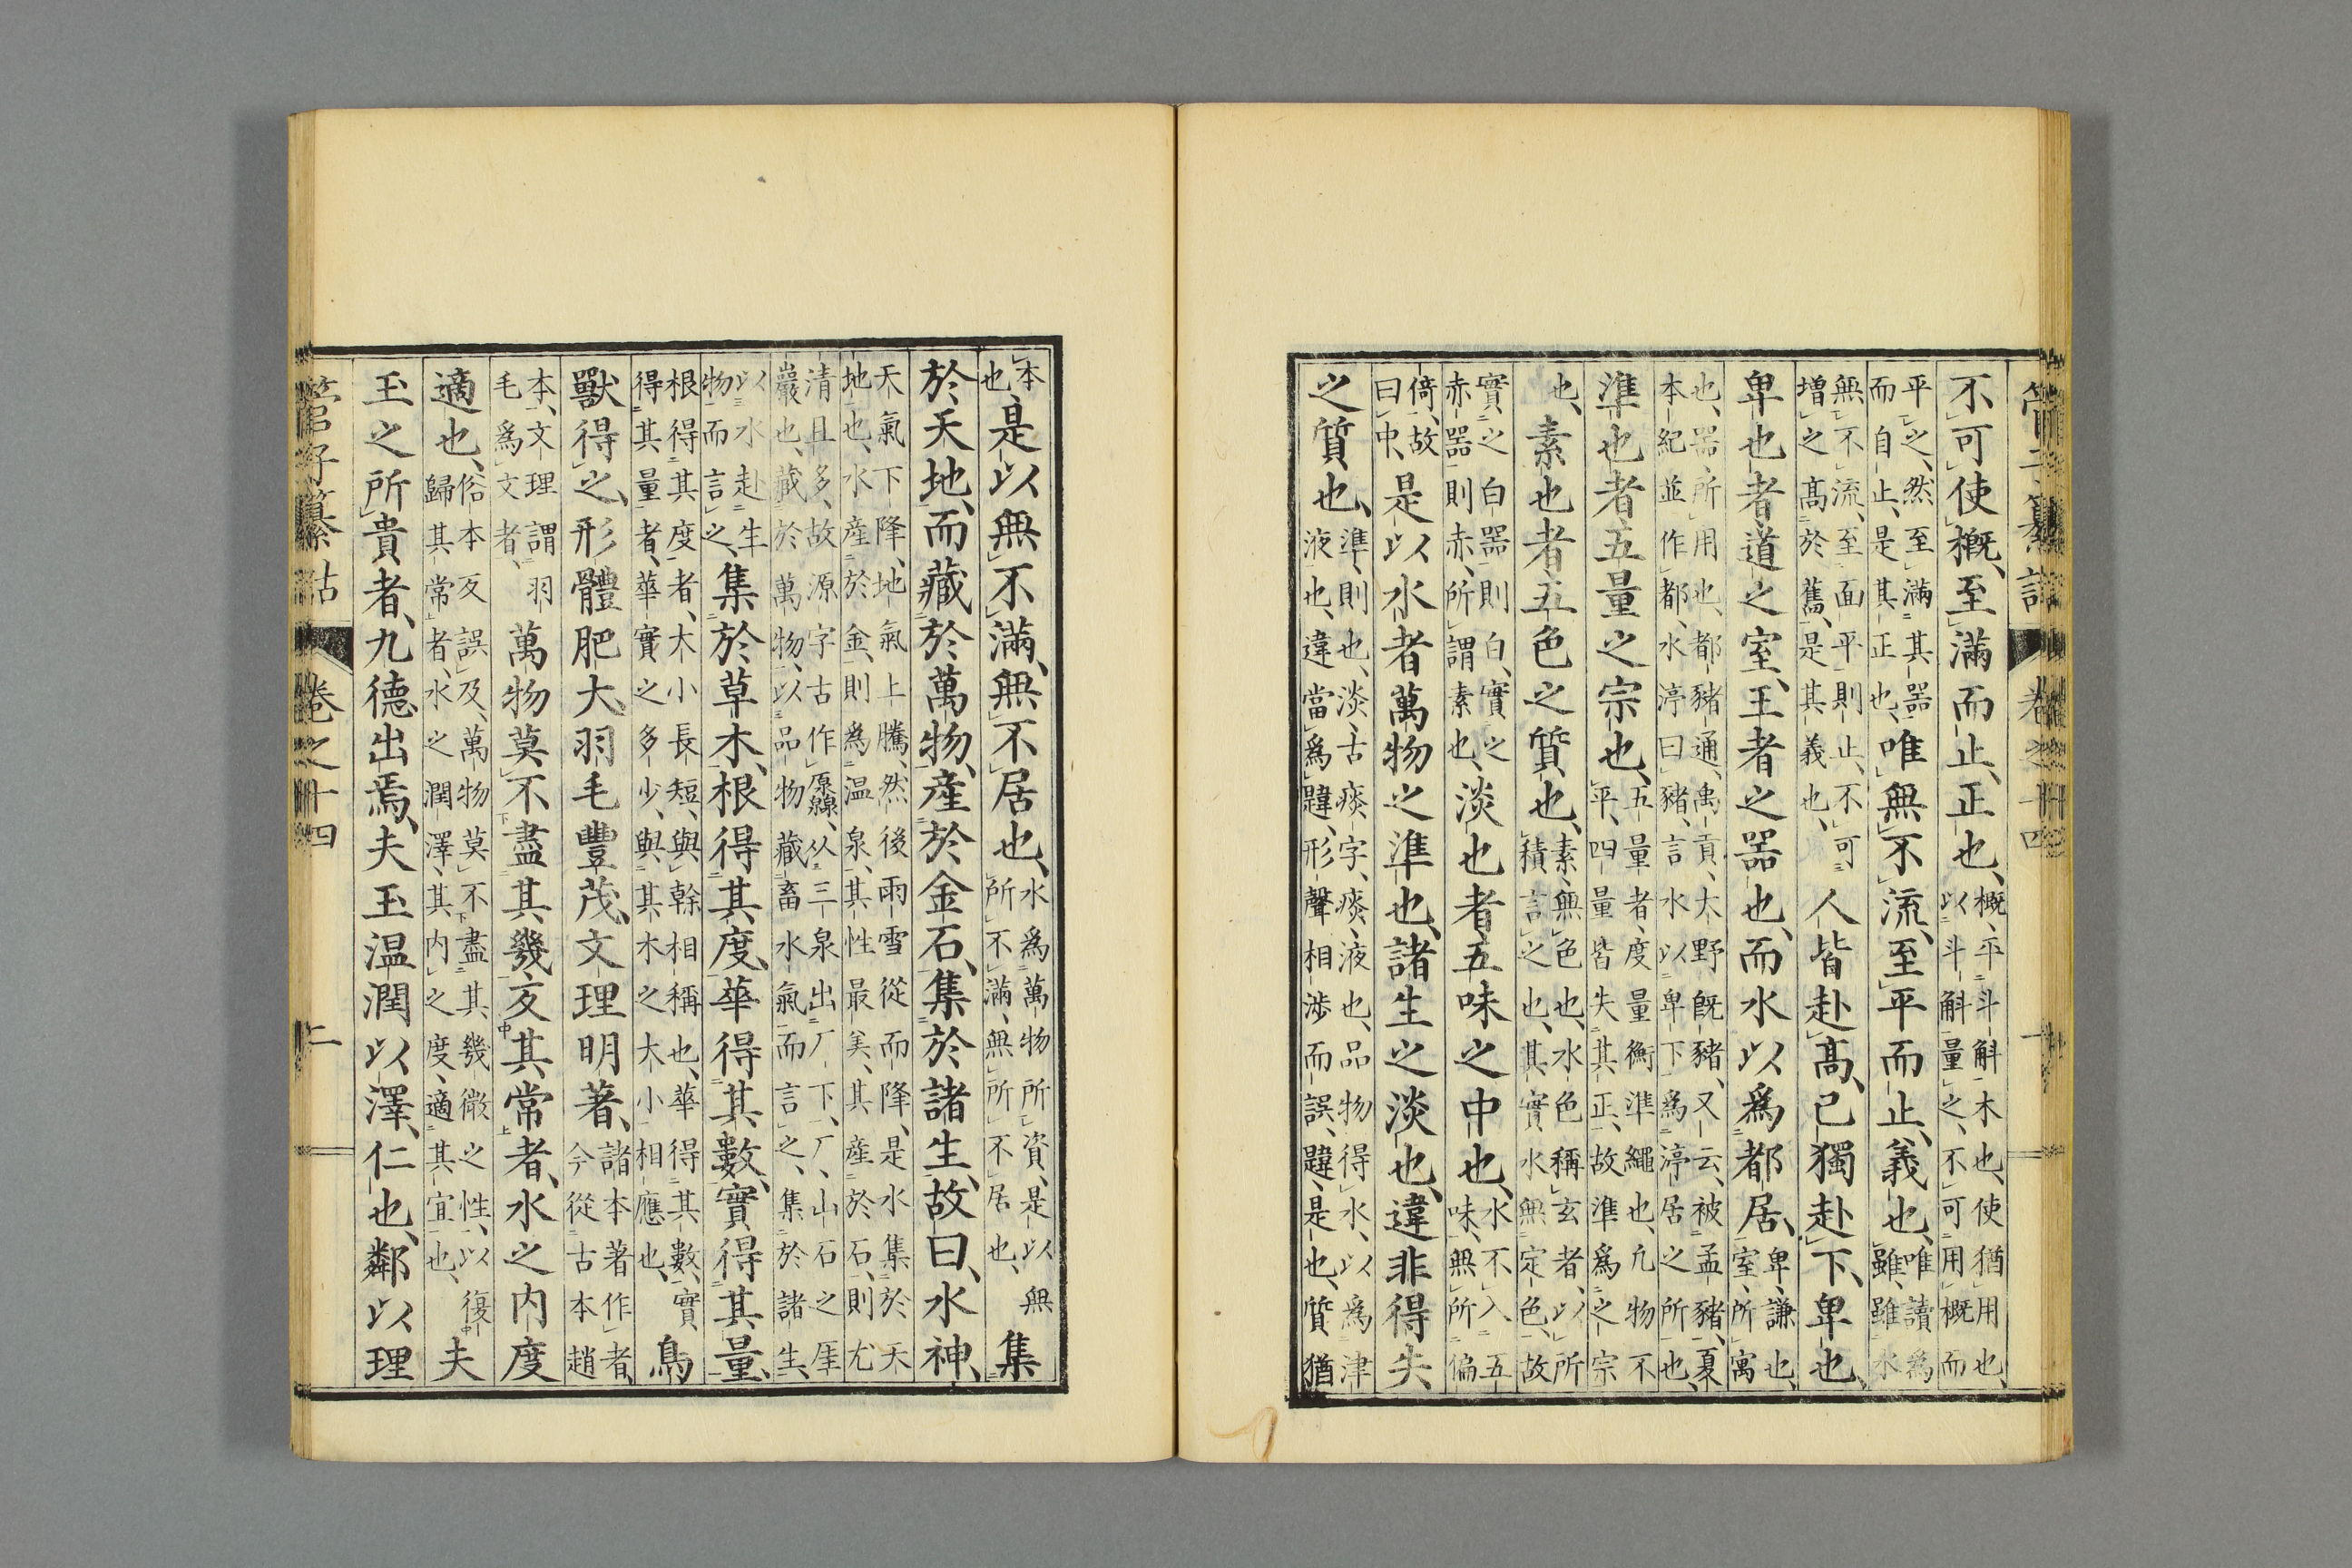 管子纂詁 卷之十四 一
不可使概、至滿而止、正也、
概、平斗斛木也、使猶用也、
以斗斛量之、不可用概而
平之、然至滿其器
而自止、是其正也、
唯無不流、至平而止、義也、
唯讀爲
雖、雖水
無不流、至面平則止、不可
增之高於舊、是其義也、
人皆赴高、己獨赴下、卑也、
卑也者道之室、王者之器也、而水以爲都居、
卑、謙也、
室、所寓
也、器、所用也、都豬通、禹貢、大野既豬、又云、被孟豬、夏
本紀並作都、水渟曰豬、言水以卑下爲渟居之所也、
準也者五量之宗也、
五量者、度量衡準繩也、凡物不
平、四量皆失其正、故準爲之宗
也、
素也者五色之質也、
素、無色也、水色稱玄者、以所
積言之也、其實水無定色、故
實之白器則白、實之
赤器則赤、所謂素也、
淡也者、五味之中也、
水不入五
味、無所偏
倚、故
曰中、
是以水者萬物之準也、諸生之淡也、違非得失
之質也、
準、則也、淡、古痰字、痰、液也、品物得水、以爲津
液也、違當爲韙、形聲相涉而誤、韙、是也、質猶
本
也、
是以無不滿、無不居也、
水爲萬物所資、是以無
所不滿、無所不居也、
集
於天地、而藏於萬物、產於金石、集於諸生、故曰、水神、
天氣下降、地氣上騰、然後雨雪從而降、是水集於天
地也、水產於金、則爲温泉、其性最美、其產於石、則尤
清且多、故源字古作厵灥、从三泉出厂下、厂、山石之厓
巖也、藏於萬物、以品物藏畜水氣而言之、集於諸生、
以水赴生
物而言之、
集於草木、根得其度、華得其數、實得其量、
根得其度者、大小長短、與幹相稱也、華得其數、實
得其量者、華實之多少、與其木之大小相應也、
鳥
獸得之、形體肥大、羽毛豐茂、文理明著、
諸本著作者、
今從古本趙
本、文理謂羽
毛爲文者、
萬物莫不盡其幾、反其常者、水之内度
適也、
俗本反誤及、萬物莫不盡其幾微之性、以復
歸其常者、水之潤澤、其内之度、適其宜也、
夫
玉之所貴者、九德出焉、夫玉温潤以澤、仁也、鄰以理
管子纂詁 卷之十四 二